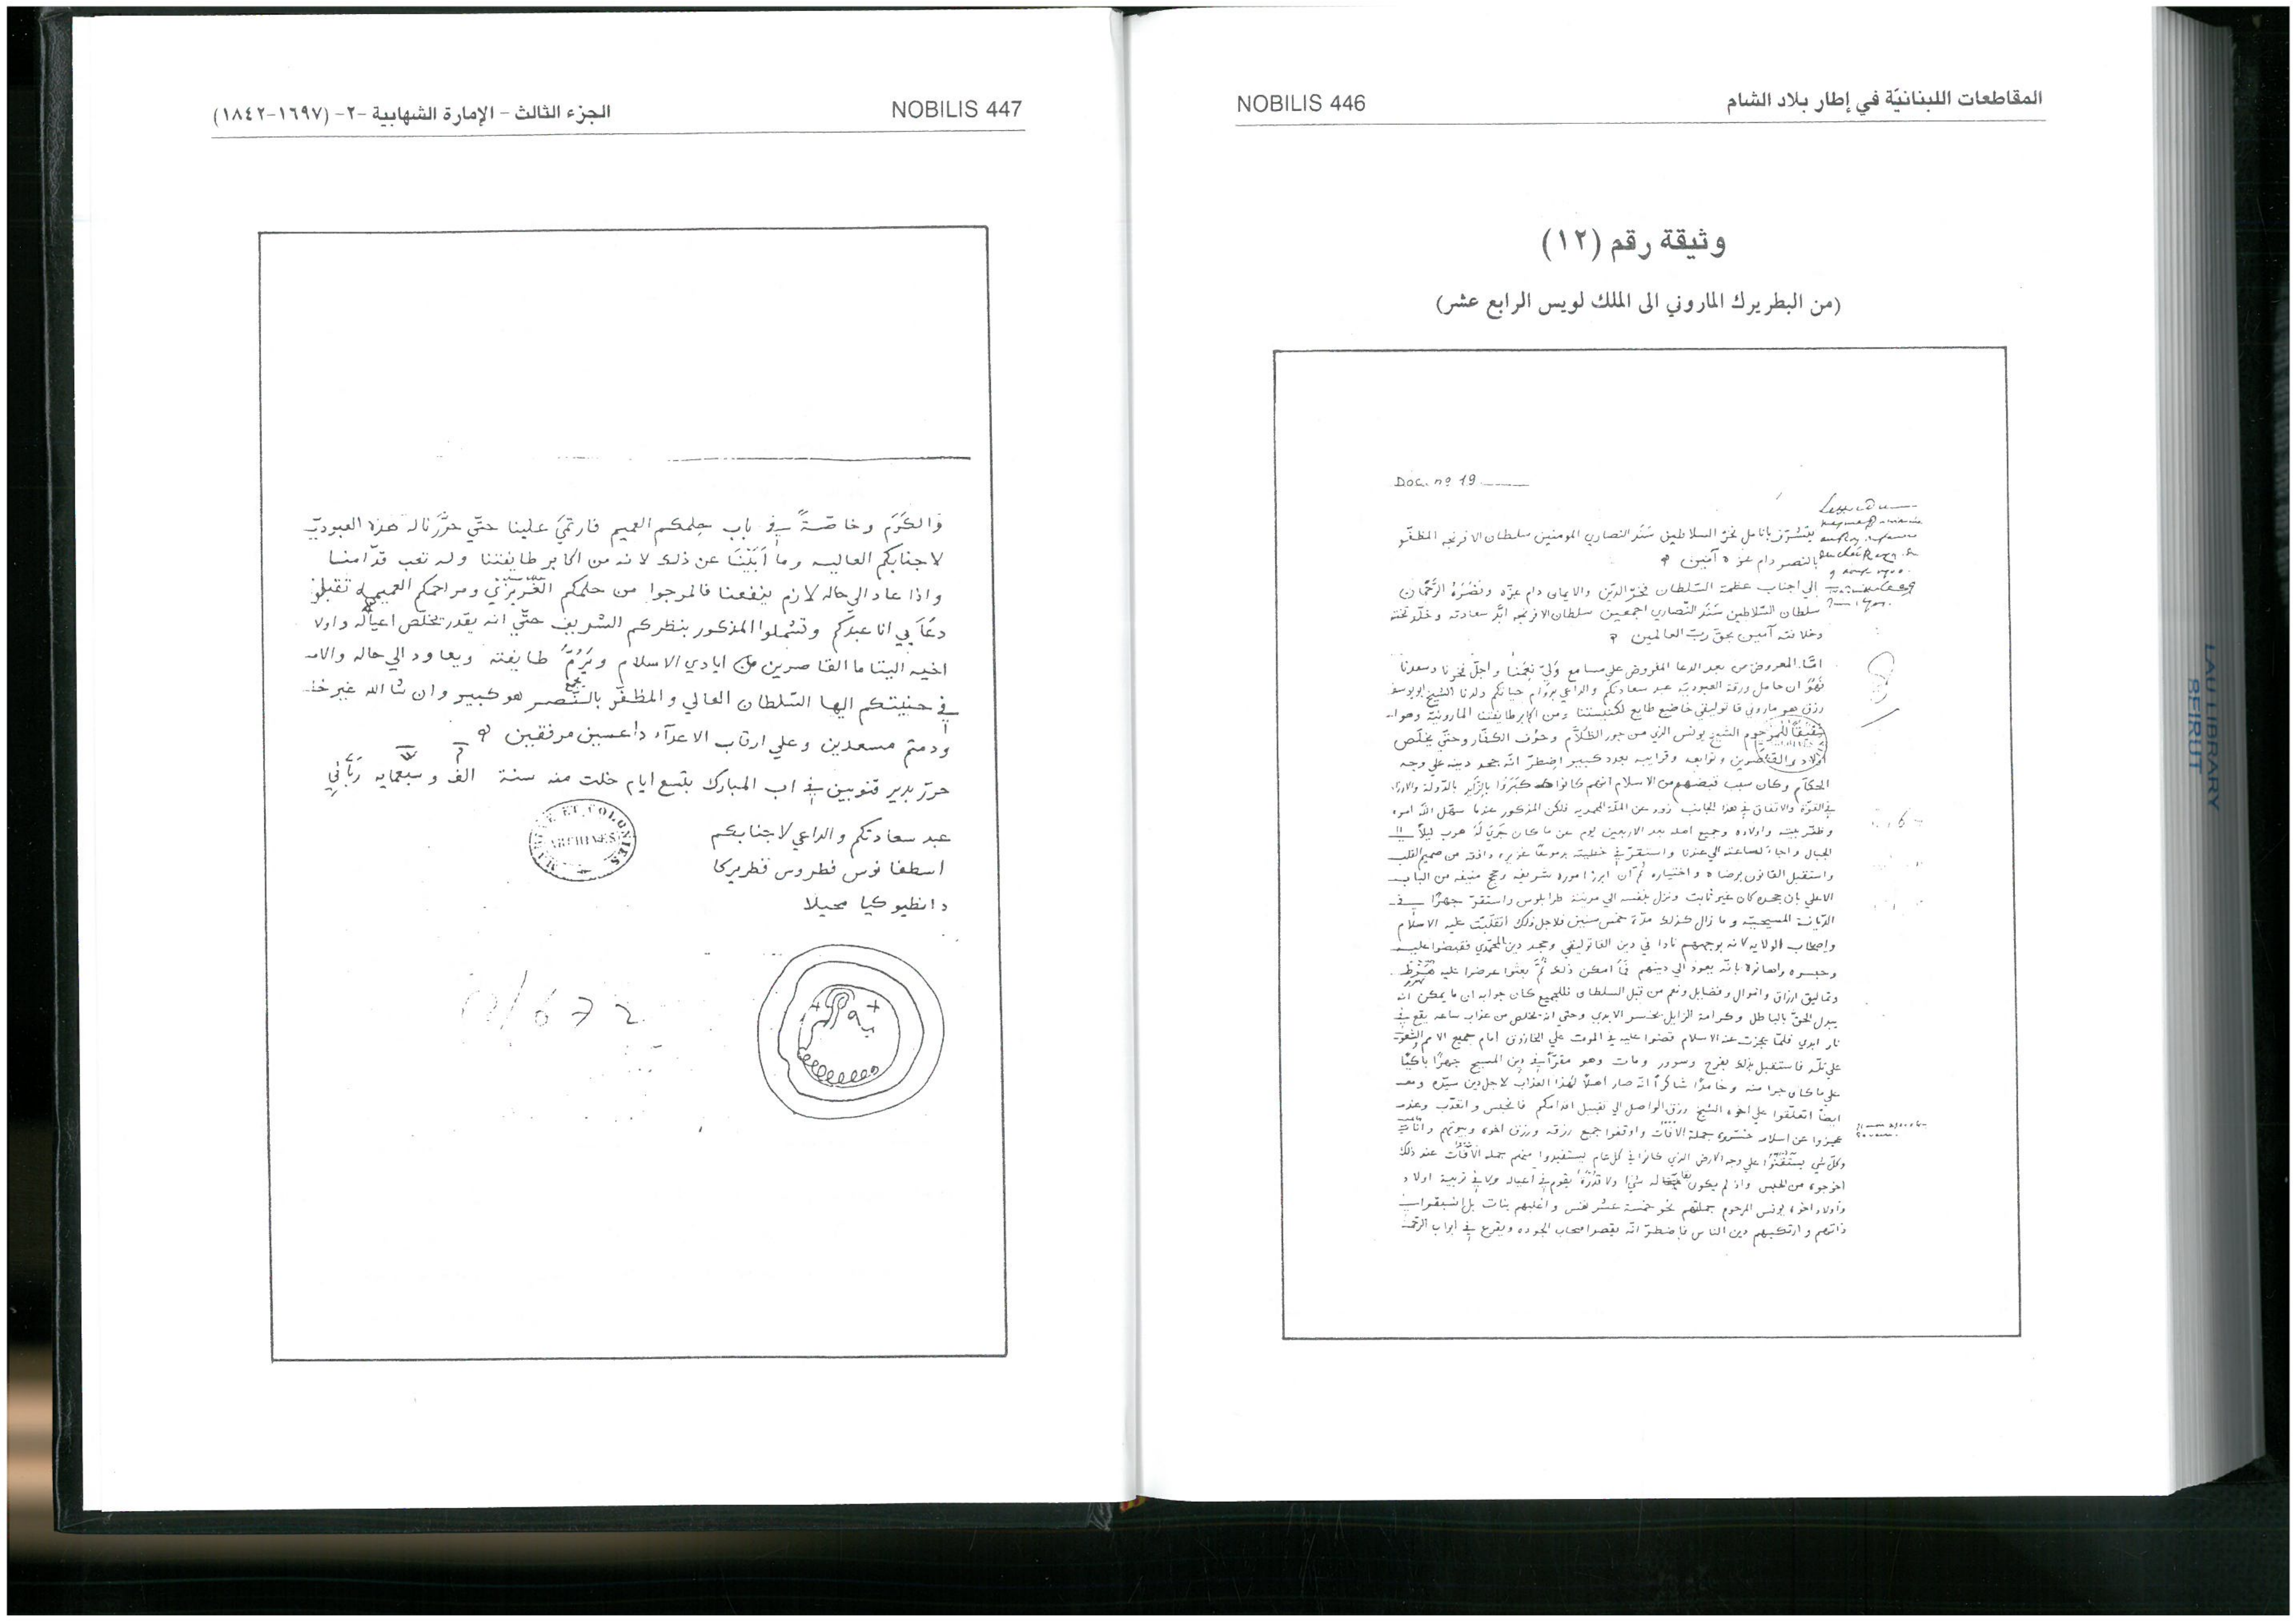 المقاطعات اللبنانيّة في إطار بلاد الشام
NOBILIS 446
وثيقة رقم (١٢)
(من البطريرك الماروني الى الملك لويس الرابع عشر)
Doc. nº 19
يتشرّف بانامل فخر السلاطين سَنَد النصاري المومنين سلطان الافرنجه المظفّر
بالنصر دام عزه آمين
الي اجناب عظمة السّلطان فخر الدّين والايمان دام عزّه ونَصَرَهُ الرَّحمان
سلطان السّلاطين سَنَد النّصاري اجمعين سلطان الافرنجه ابّد سعادته وخلّد تخته
وخلافته آمين بحق ربّ العالمين
امّا المعروض من بعد الدعا المفروض علي مسامع وَليّ نِعَمِنا واجلّ فخرنا وسعدنا
فهُوَ ان حامل ورقة العبوديّه عبد سعادتكم والداعي بدَوَام حياتكم ولدنا الشيخ ابو يوسف
رزق هو ماروني قاتوليقي خاضع طايع لكنيستنا ومن اكابر طايفتنا المارونيّة وهو
شقيقاً للمرحوم الشيخ يونس الذي من جور الظلّام وخوف الكفّار وحتّي يخلّص
اولاده القاصرين وتوابعه وقرايبه بعدد كبير اضطرّ انّه جحد دينه علي وجه
الحكّام وكان سبب قبضهم من الاسلام انّهم كانوا
في القوّة والاتفاق في هذا الجانب زود عن الملّة المحمديه فلكن المذكور عندما سهّل الله اموره
وظفّر بيته واولاده وجميع اهله بعد الاربعين يوم عن ما كان جَرَيَ لَهُ هرب ليلاً الي
الجبال واجا لساعته الي عندنا واستقرّ في خطيته بدموعٍ غزيره دافقه من صميم القلب
واستقبل القانون برضاه واختياره ثمّ ان ابرز اموره شريفه وحجج منيفه من الباب
الاعلي بان جحده كان غير ثابت ونزل بنفسه الي مدينة طرابلوس واستقرّ جهرًا في
الدّيانة المسيحيّه وما زال كذلك مدّة خمس سنين فلاجل ذلك انقلبَت عليه الاسلام
واصحاب الولايه لانه بوجههم نادا في دين القاتوليقي وجحد دين المحمّدي فقبضوا عليه
وحبسوه بانّه يعود الي دينهم فما امكن ذلك ثمّ بعدُ عرضوا عليه
وتماليق ارزاق واموال وفضايل ونعم من قبل السلطان فللجميع كان جوابه ان ما يمكن انه
يبدل الحقّ بالباطل وكرامة الزايل بخسر الابدي وحتي انه يخلص من عذاب ساعه يقع في
نار ابدي فلمّا عجزت عنه الاسلام قضوا عليه في الموت علي الخازوق امام جميع الامم
فاستقبل ذلك بفرح وسرور ومات وهو مقرّاً في دين المسيح جهرًا باكيًا
علي ما كان جرا منه وحامدًا شاكراً انّه صار اهلاً لهذا العذاب لاجل دين سيّده وبعد
ايضاً اتعلّقوا علي اخوه الشيخ رزق الواصل الي تقبيل اقدامكم فانحبس واتعذّب وعندما
عجزوا عن اسلامه خسّروه جملة الافات واوقفوا جميع رزقه ورزق اخوه وبيوتهم واثاث
وكل شي علي وجه الارض الذي كانوا في كل عام يستفيدوا منهم جملة عند ذلك
اخرجوه من الحبس واذ لم يكون له شيا ولا قدرة يقوم في اعياله ولا في تربية اولاد
واولاد اخوه يونس المرحوم جملتهم نحو خمسة عشر نفس واغلبهم بنات
ذاتهم وارتكبهم دين الناس فاضطرّ انّه يقصد اصحاب الجوده ويقرع في ابواب الرحمة
NOBILIS 447
الجزء الثالث - الإمارة الشهابية -٢- (١٦٩٧-١٨٤٢)
والكَرَم وخاصّةً في باب حلمكم العميم فارتميَ علينا حتّي حرّرنا له هذه العبوديّه
لاجنابكم العاليه وما اَبَيْنَا عن ذلك لانه من اكابر طايفتنا وله تعب قدّامنا
واذا عاد الي حاله لازم ينفعنا فالمرجوا من حلمكم الغريزي ومراحمكم العميمه تقبلوا
دعَآيي انا عبدكم وتشملوا المذكور بنظركم الشريف حتّي انه يقدر يخلّص اعياله واولاد
اخيه اليتاما القاصرين من ايادي الاسلام ويَرُمّ طايفته ويعاود الي حاله والامل
في حنيتكم ايها السّلطان العالي والمظفّر بالنّصر هو كبير وان شا الله غير خايب
ودمتم مسعدين وعلي ارقاب الاعدآء داعسين مرفقين
حرّر بدير قنوبين في اب المبارك بتسع ايام خلت منه سنة الف وسبعمايه ربّاني
عبد سعادتكم والداعي لاجنابكم
اسطفانوس فطروس فطريركا
دانطيوكيا محيلا
MARINE ET COLONIES
ARCHIVES
LAU LIBRARY
BEIRUT